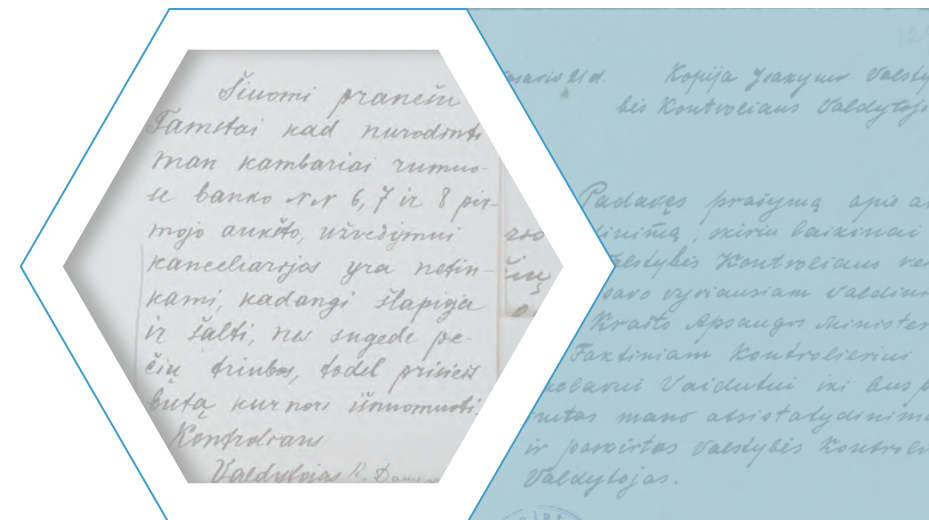 Šiuomi pranešu
Tamstai kad nurodinti
man kambariai rumuo-
se banko NN 6, 7 ir 8 pir-
mojo aukšto, užvežymui
kanceliarijos yra netin-
kami, kadangi šlapia
ir šalti, nes sugede pe-
čių triubos, todel prisieis
butą kur nors išnuomuoti.
Kontroliaus
Valdytojas
21 d. Kopija Įsakymo Valsty
bės Kontroliaus Valdytojo
Padavęs prašymą apie
skiriu laikinai
Valstybės Kontroliaus
savo vyriausiam
Krašto Apsaugos Minister
Faktiniam Kontrolieriui
Vaidutui iki bus
mano atsistatydinima
ir paskirtas Valstybės Kontrol
Valdytojas.